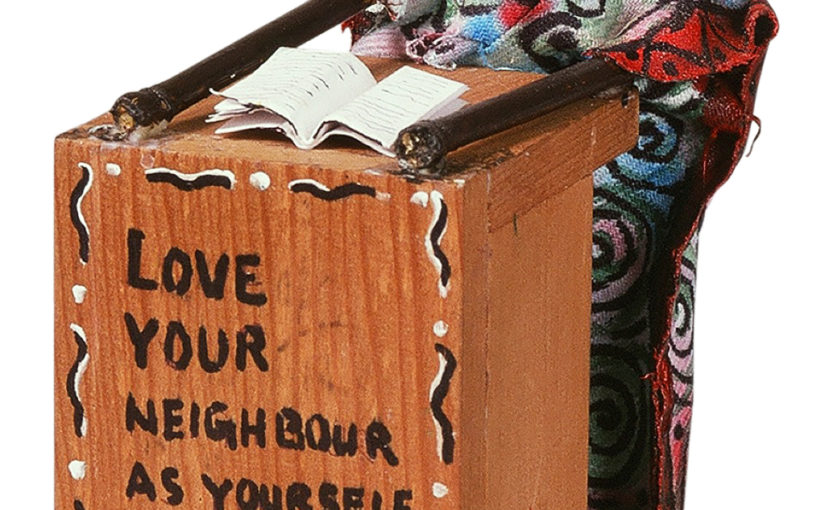 LOVE
YOUR
NEIGHBOUR
AS YOURSELF